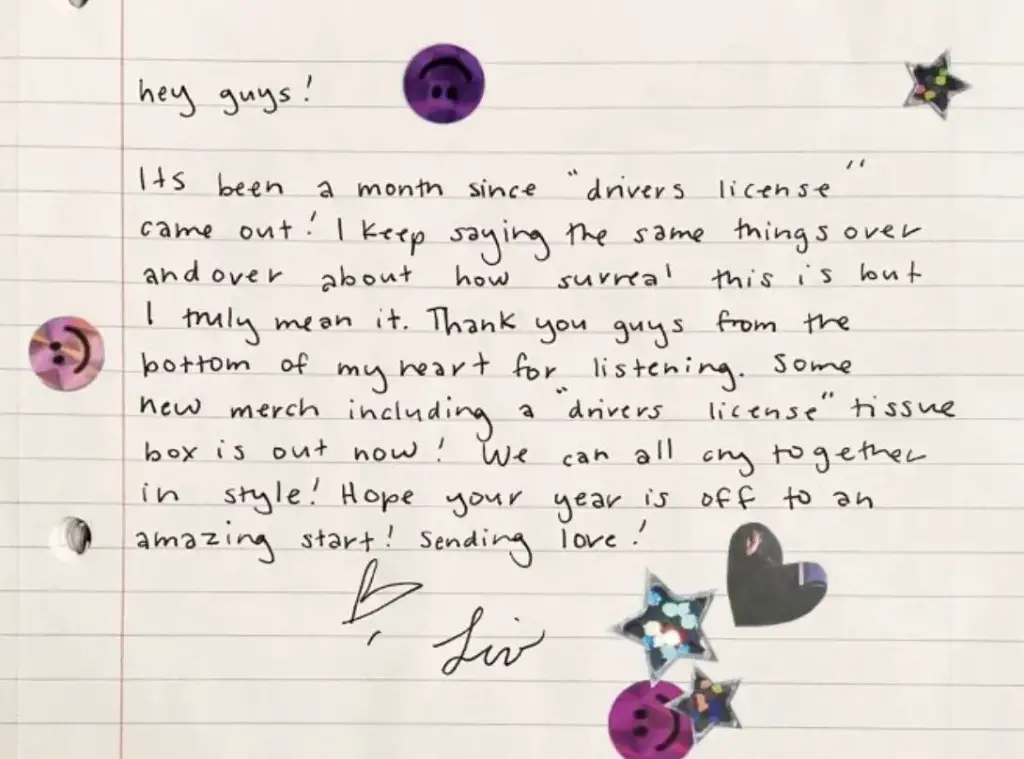 hey guys!
Its been a month since "drivers license"
came out! I keep saying the same things over
and over about how surreal this is but
I truly mean it. Thank you guys from the
bottom of my heart for listening. Some
new merch including a "drivers license" tissue
box is out now! We can all cry together
in style! Hope your year is off to an
amazing start! sending love!
Liv